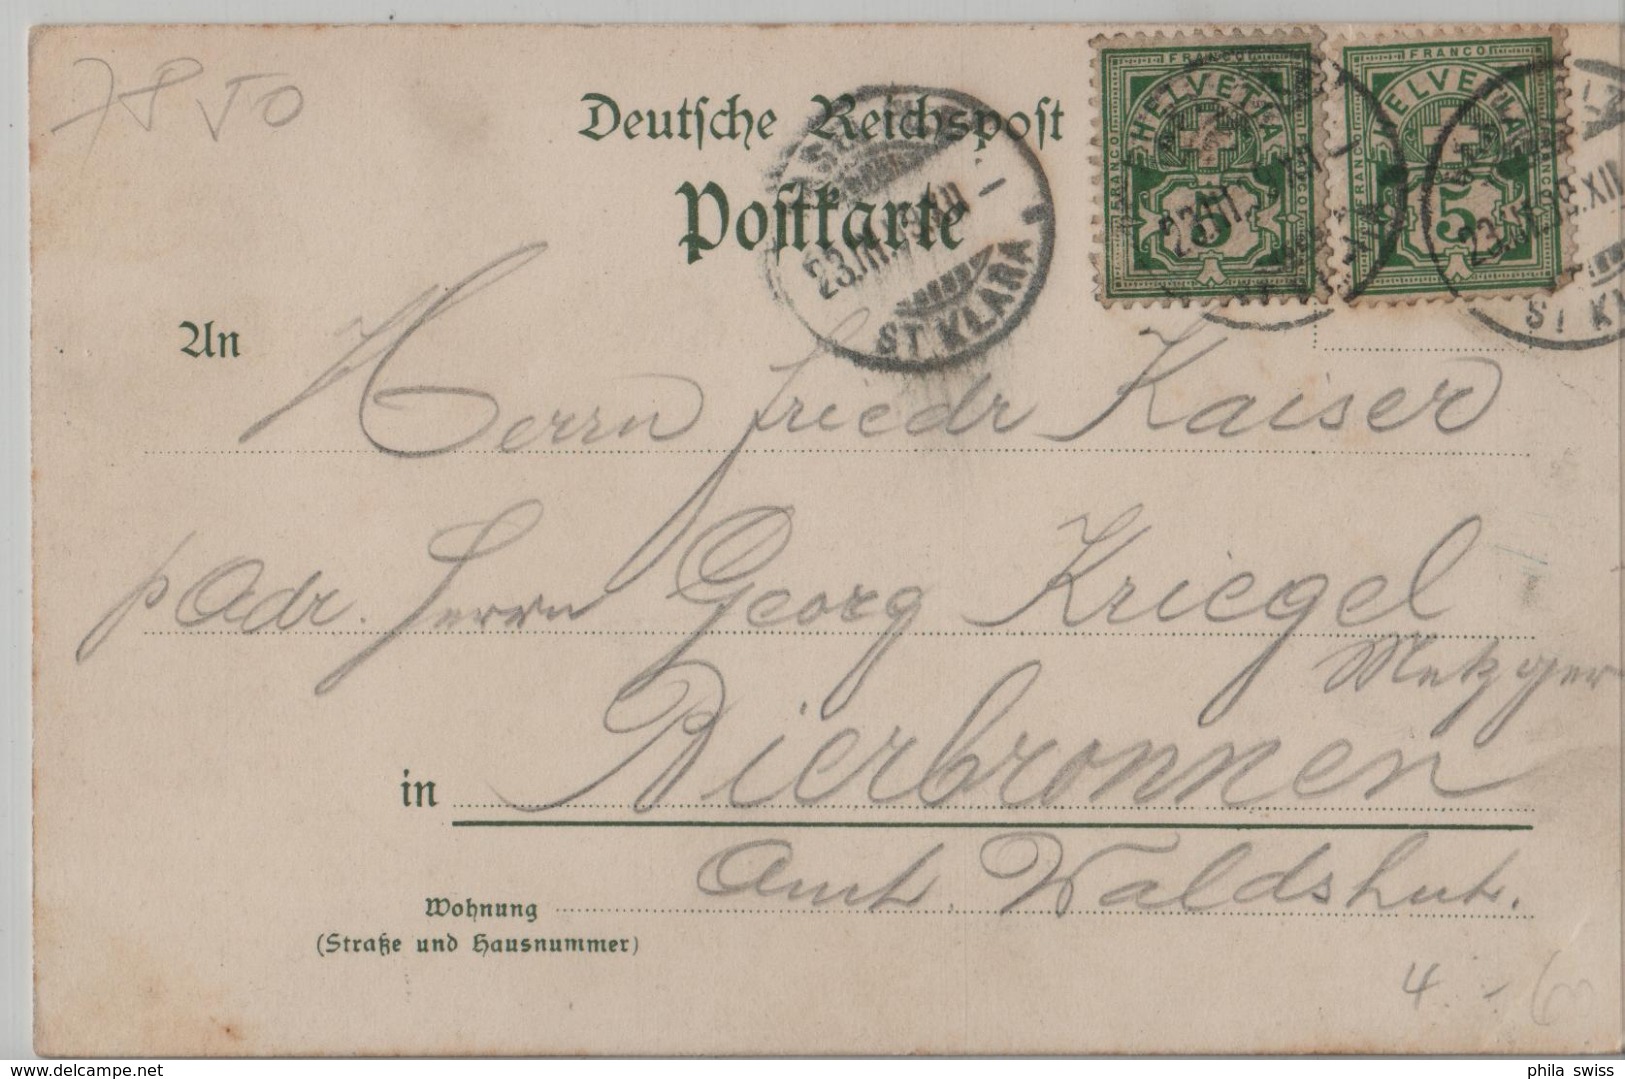 78 50
Deutsche Reichspost
Postkarte
ST. KLARA
FRANCO
HELVETIA
5
FRANCO
HELVETIA
5
An
Herrn Friedr Kaiser
p Adr. Herrn Georg Kriegel
Metzger
in Bierbronnen
Amt Waldshut.
Wohnung
(Straße und Hausnummer)
4.-
phila swiss